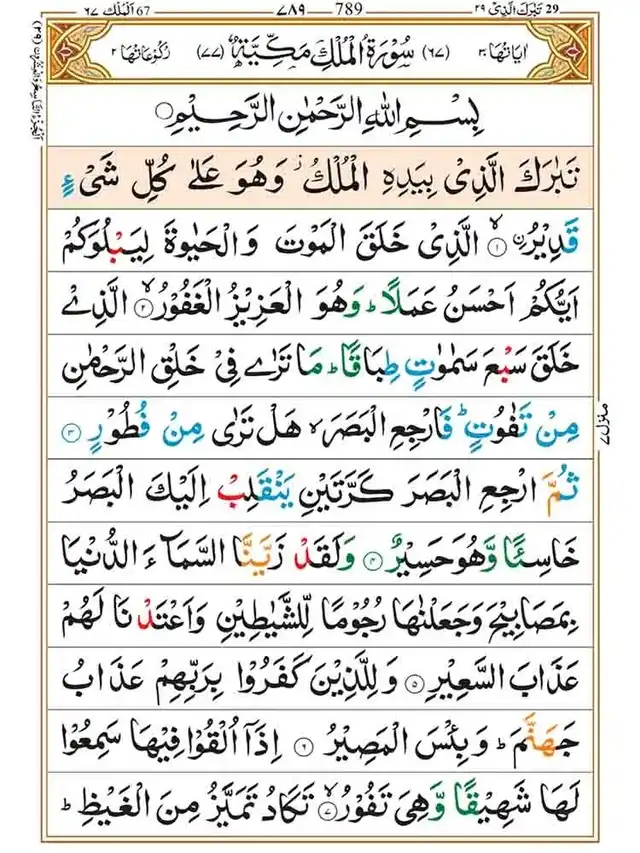 29 تَبٰرَكَ الَّذِىْ ٢٩
789 ٧٨٩
67 اَلْمُلْك ٦٧
اٰيَاتُهَا ٣٠ (٦٧) سُوْرَةُ الْمُلْكِ مَكِّيَّةٌ (٧٧) رُكُوْعَاتُهَا ٢
بِسْمِ اللهِ الرَّحْمٰنِ الرَّحِيْمِ
تَبٰرَكَ الَّذِىْ بِيَدِهِ الْمُلْكُ ز وَهُوَ عَلٰى كُلِّ شَىْءٍ
قَدِيْرُ ۨ ۙ ١ الَّذِىْ خَلَقَ الْمَوْتَ وَالْحَيٰوةَ لِيَبْلُوَكُمْ
اَيُّكُمْ اَحْسَنُ عَمَلًا ؕ وَهُوَ الْعَزِيْزُ الْغَفُوْرُ ۙ ٢ الَّذِىْ
خَلَقَ سَبْعَ سَمٰوٰتٍ طِبَاقًا ؕ مَا تَرٰى فِىْ خَلْقِ الرَّحْمٰنِ
مِنْ تَفٰوُتٍ ؕ فَارْجِعِ الْبَصَرَ ۙ هَلْ تَرٰى مِنْ فُطُوْرٍ ٣
ثُمَّ ارْجِعِ الْبَصَرَ كَرَّتَيْنِ يَنْقَلِبْ اِلَيْكَ الْبَصَرُ
خَاسِئًا وَّهُوَ حَسِيْرٌ ٤ وَلَقَدْ زَيَّنَّا السَّمَآءَ الدُّنْيَا
بِمَصَابِيْحَ وَجَعَلْنٰهَا رُجُوْمًا لِّلشَّيٰطِيْنِ وَاَعْتَدْنَا لَهُمْ
عَذَابَ السَّعِيْرِ ٥ وَلِلَّذِيْنَ كَفَرُوْا بِرَبِّهِمْ عَذَابُ
جَهَنَّمَ ؕ وَبِئْسَ الْمَصِيْرُ ٦ اِذَآ اُلْقُوْا فِيْهَا سَمِعُوْا
لَهَا شَهِيْقًا وَّهِىَ تَفُوْرُ ۙ ٧ تَكَادُ تَمَيَّزُ مِنَ الْغَيْظِ ؕ
منزل ٧